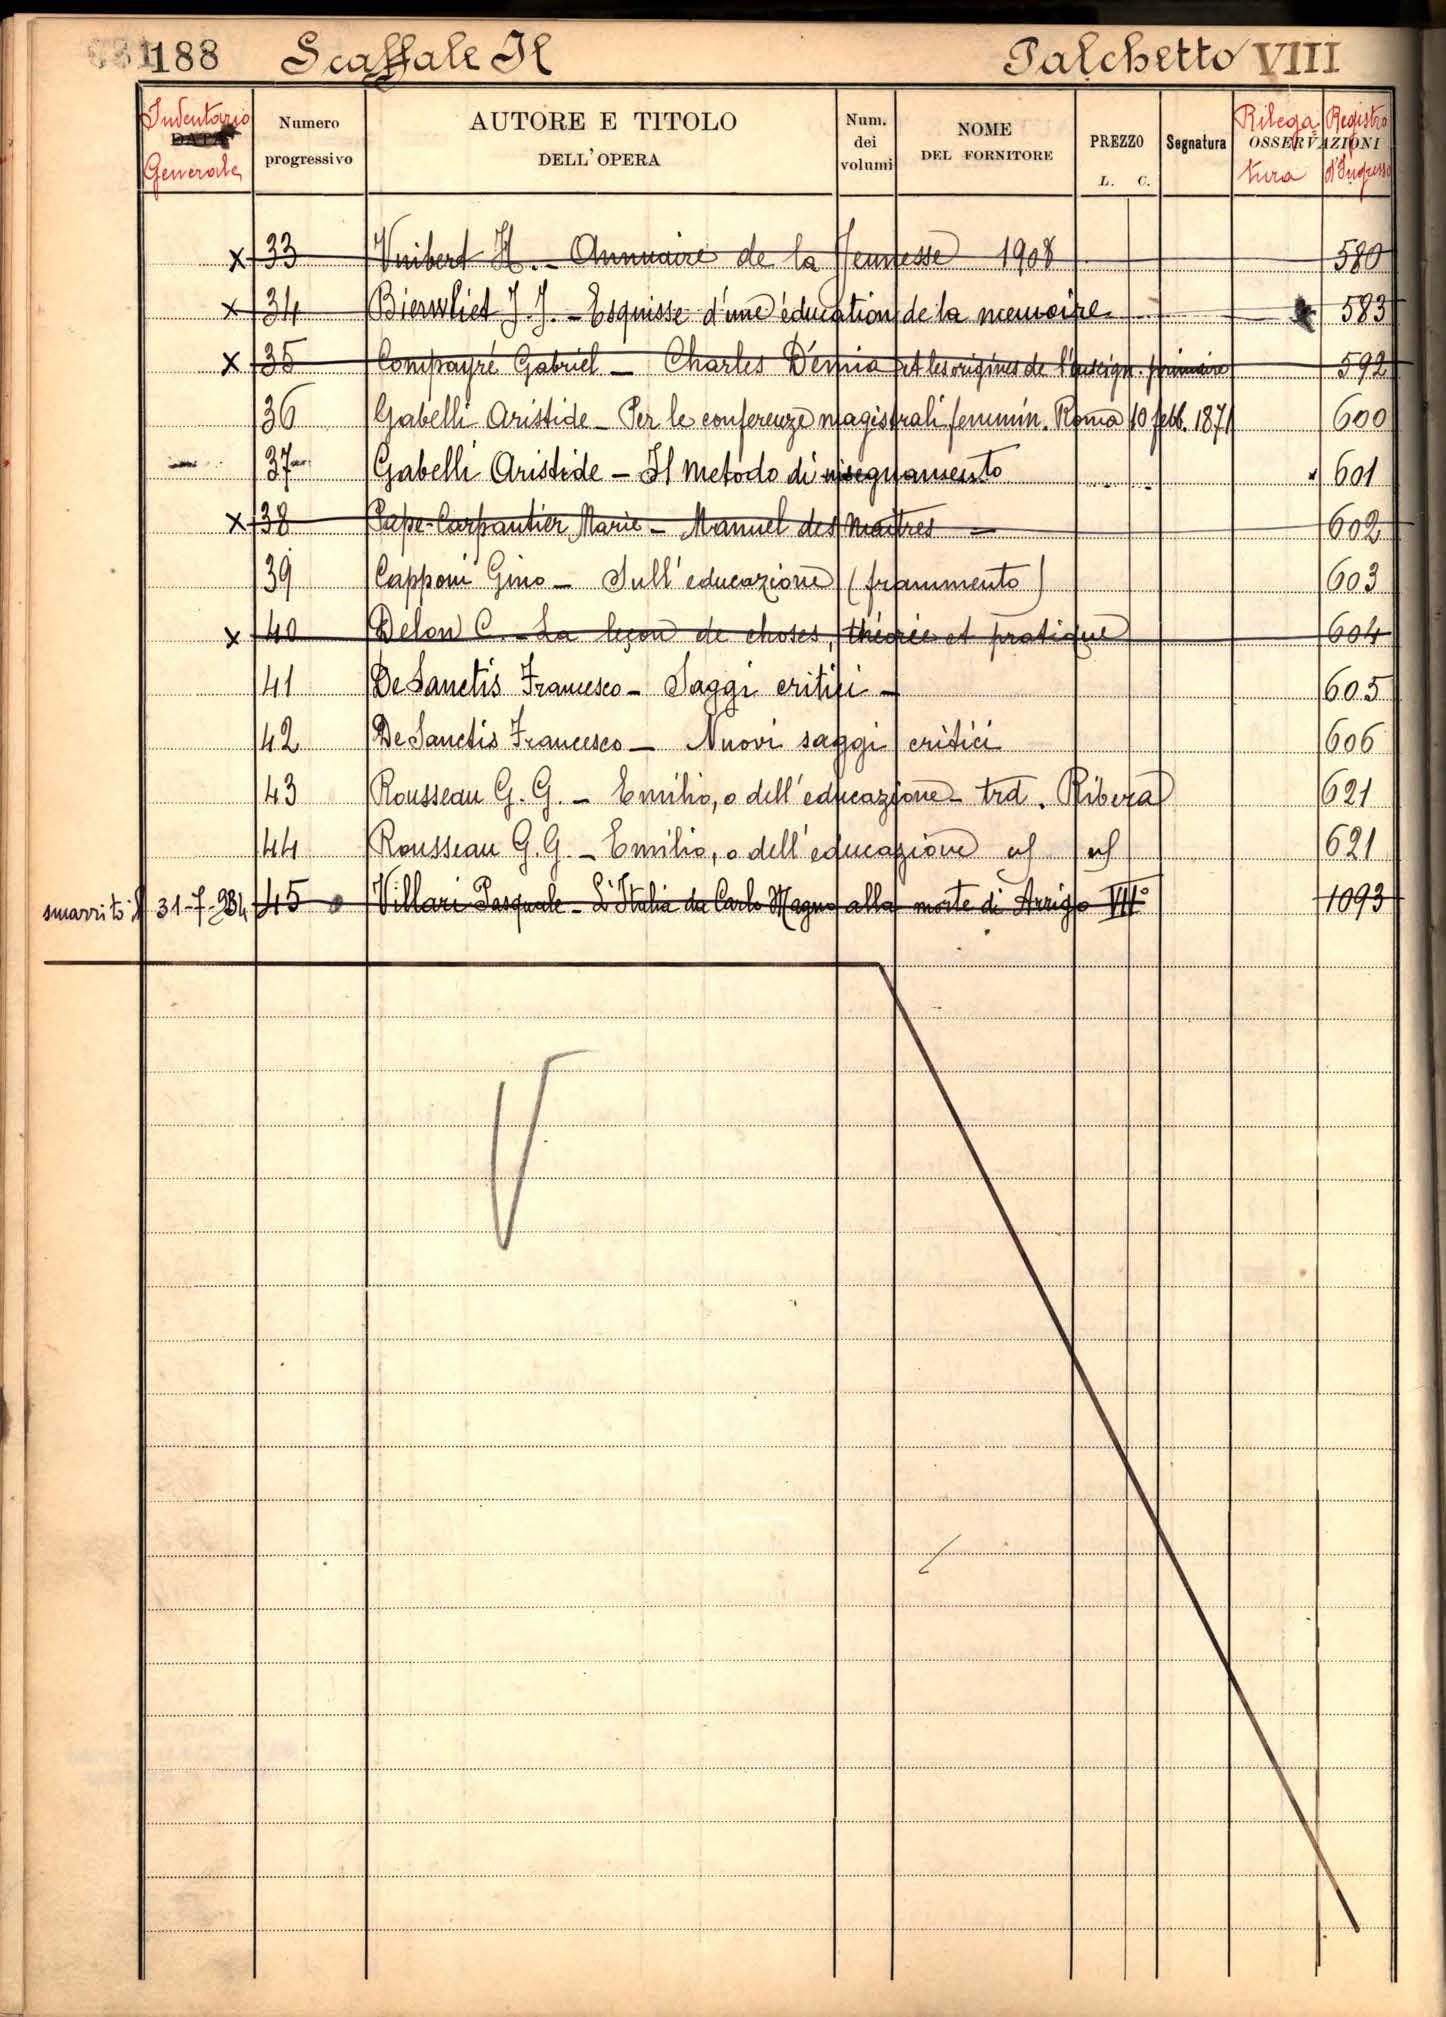 188 Scaffale II Palchetto VIII
Inventario Generale DATA
Numero progressivo
AUTORE E TITOLO DELL'OPERA
Num. dei volumi
NOME DEL FORNITORE
PREZZO L. C.
Segnatura
OSSERVAZIONI
Rilegatura
Registro d'Ingresso
x 33 Vuibert H. - Annuaire de la Jeunesse 1908 580
x 34 Biervliet J. J. - Esquisse d'une éducation de la memoire 583
x 35 Compayré Gabriel - Charles Démia et les origines de l'enseign. primaire 592
36 Gabelli Aristide - Per le conferenze magistrali femmin. Roma 10 febb. 1871 600
37 Gabelli Aristide - Il metodo di insegnamento 601
x 38 Pape-Carpantier Marie - Manuel des maîtres - 602
39 Capponi Gino - Sull'educazione (frammento) 603
x 40 Delon C. - La leçon de choses, théorie et pratique 604
41 De Sanctis Francesco - Saggi critici - 605
42 De Sanctis Francesco - Nuovi saggi critici 606
43 Rousseau G. G. - Emilio, o dell'educazione - trd. Ribera 621
44 Rousseau G. G. - Emilio, o dell'educazione 621
smarrito il 31-7-934 45 Villari Pasquale - L'Italia da Carlo Magno alla morte di Arrigo VII° 1093